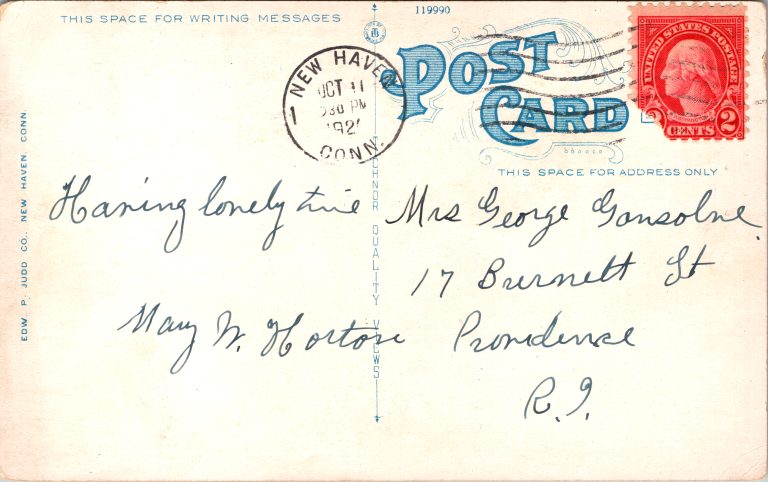 THIS SPACE FOR WRITING MESSAGES
119990
POST
CARD
UNITED STATES POSTAGE
WASHINGTON
2 CENTS 2
NEW HAVEN
OCT 11
30 PM
192
CONN.
1
THIS SPACE FOR ADDRESS ONLY
EDW. P. JUDD CO., NEW HAVEN CONN.
QUALITY VIEWS
Having lonely time
Mary W. Horton
Mrs George
17 Burnett St
Providence
R.I.